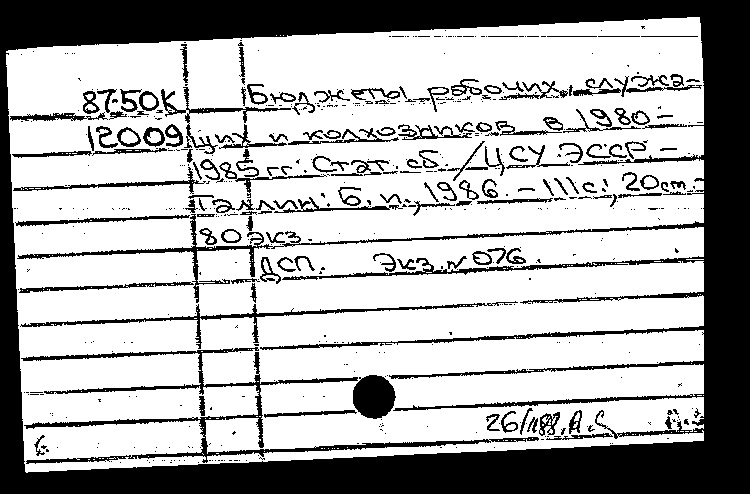 87-50К Бюджеты рабочих, служа-
12009 щих и колхозников в 1980-
1985 гг.: Стат. сб. / ЦСУ ЭССР. -
Таллин: Б. и., 1986. - 111 с.; 20 см. -
80 экз.
ДСП. Экз. № 076.
6